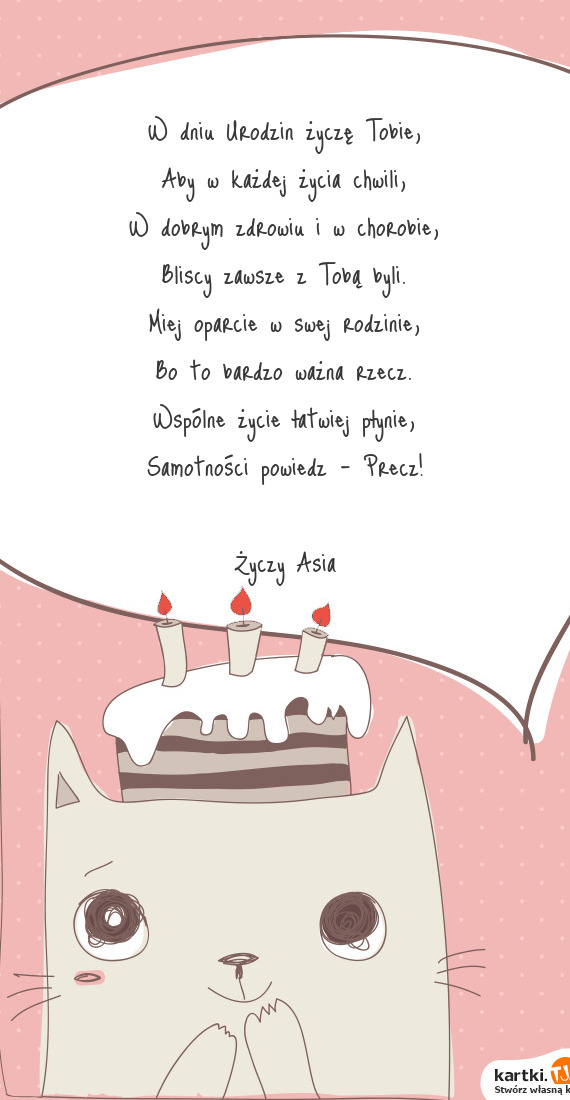 W dniu Urodzin życzę Tobie,
Aby w każdej życia chwili,
W dobrym zdrowiu i w chorobie,
Bliscy zawsze z Tobą byli.
Miej oparcie w swej rodzinie,
Bo to bardzo ważna rzecz.
Wspólne życie łatwiej płynie,
Samotności powiedz - Precz!
Życzy Asia
kartki.TJ
Stwórz własną k